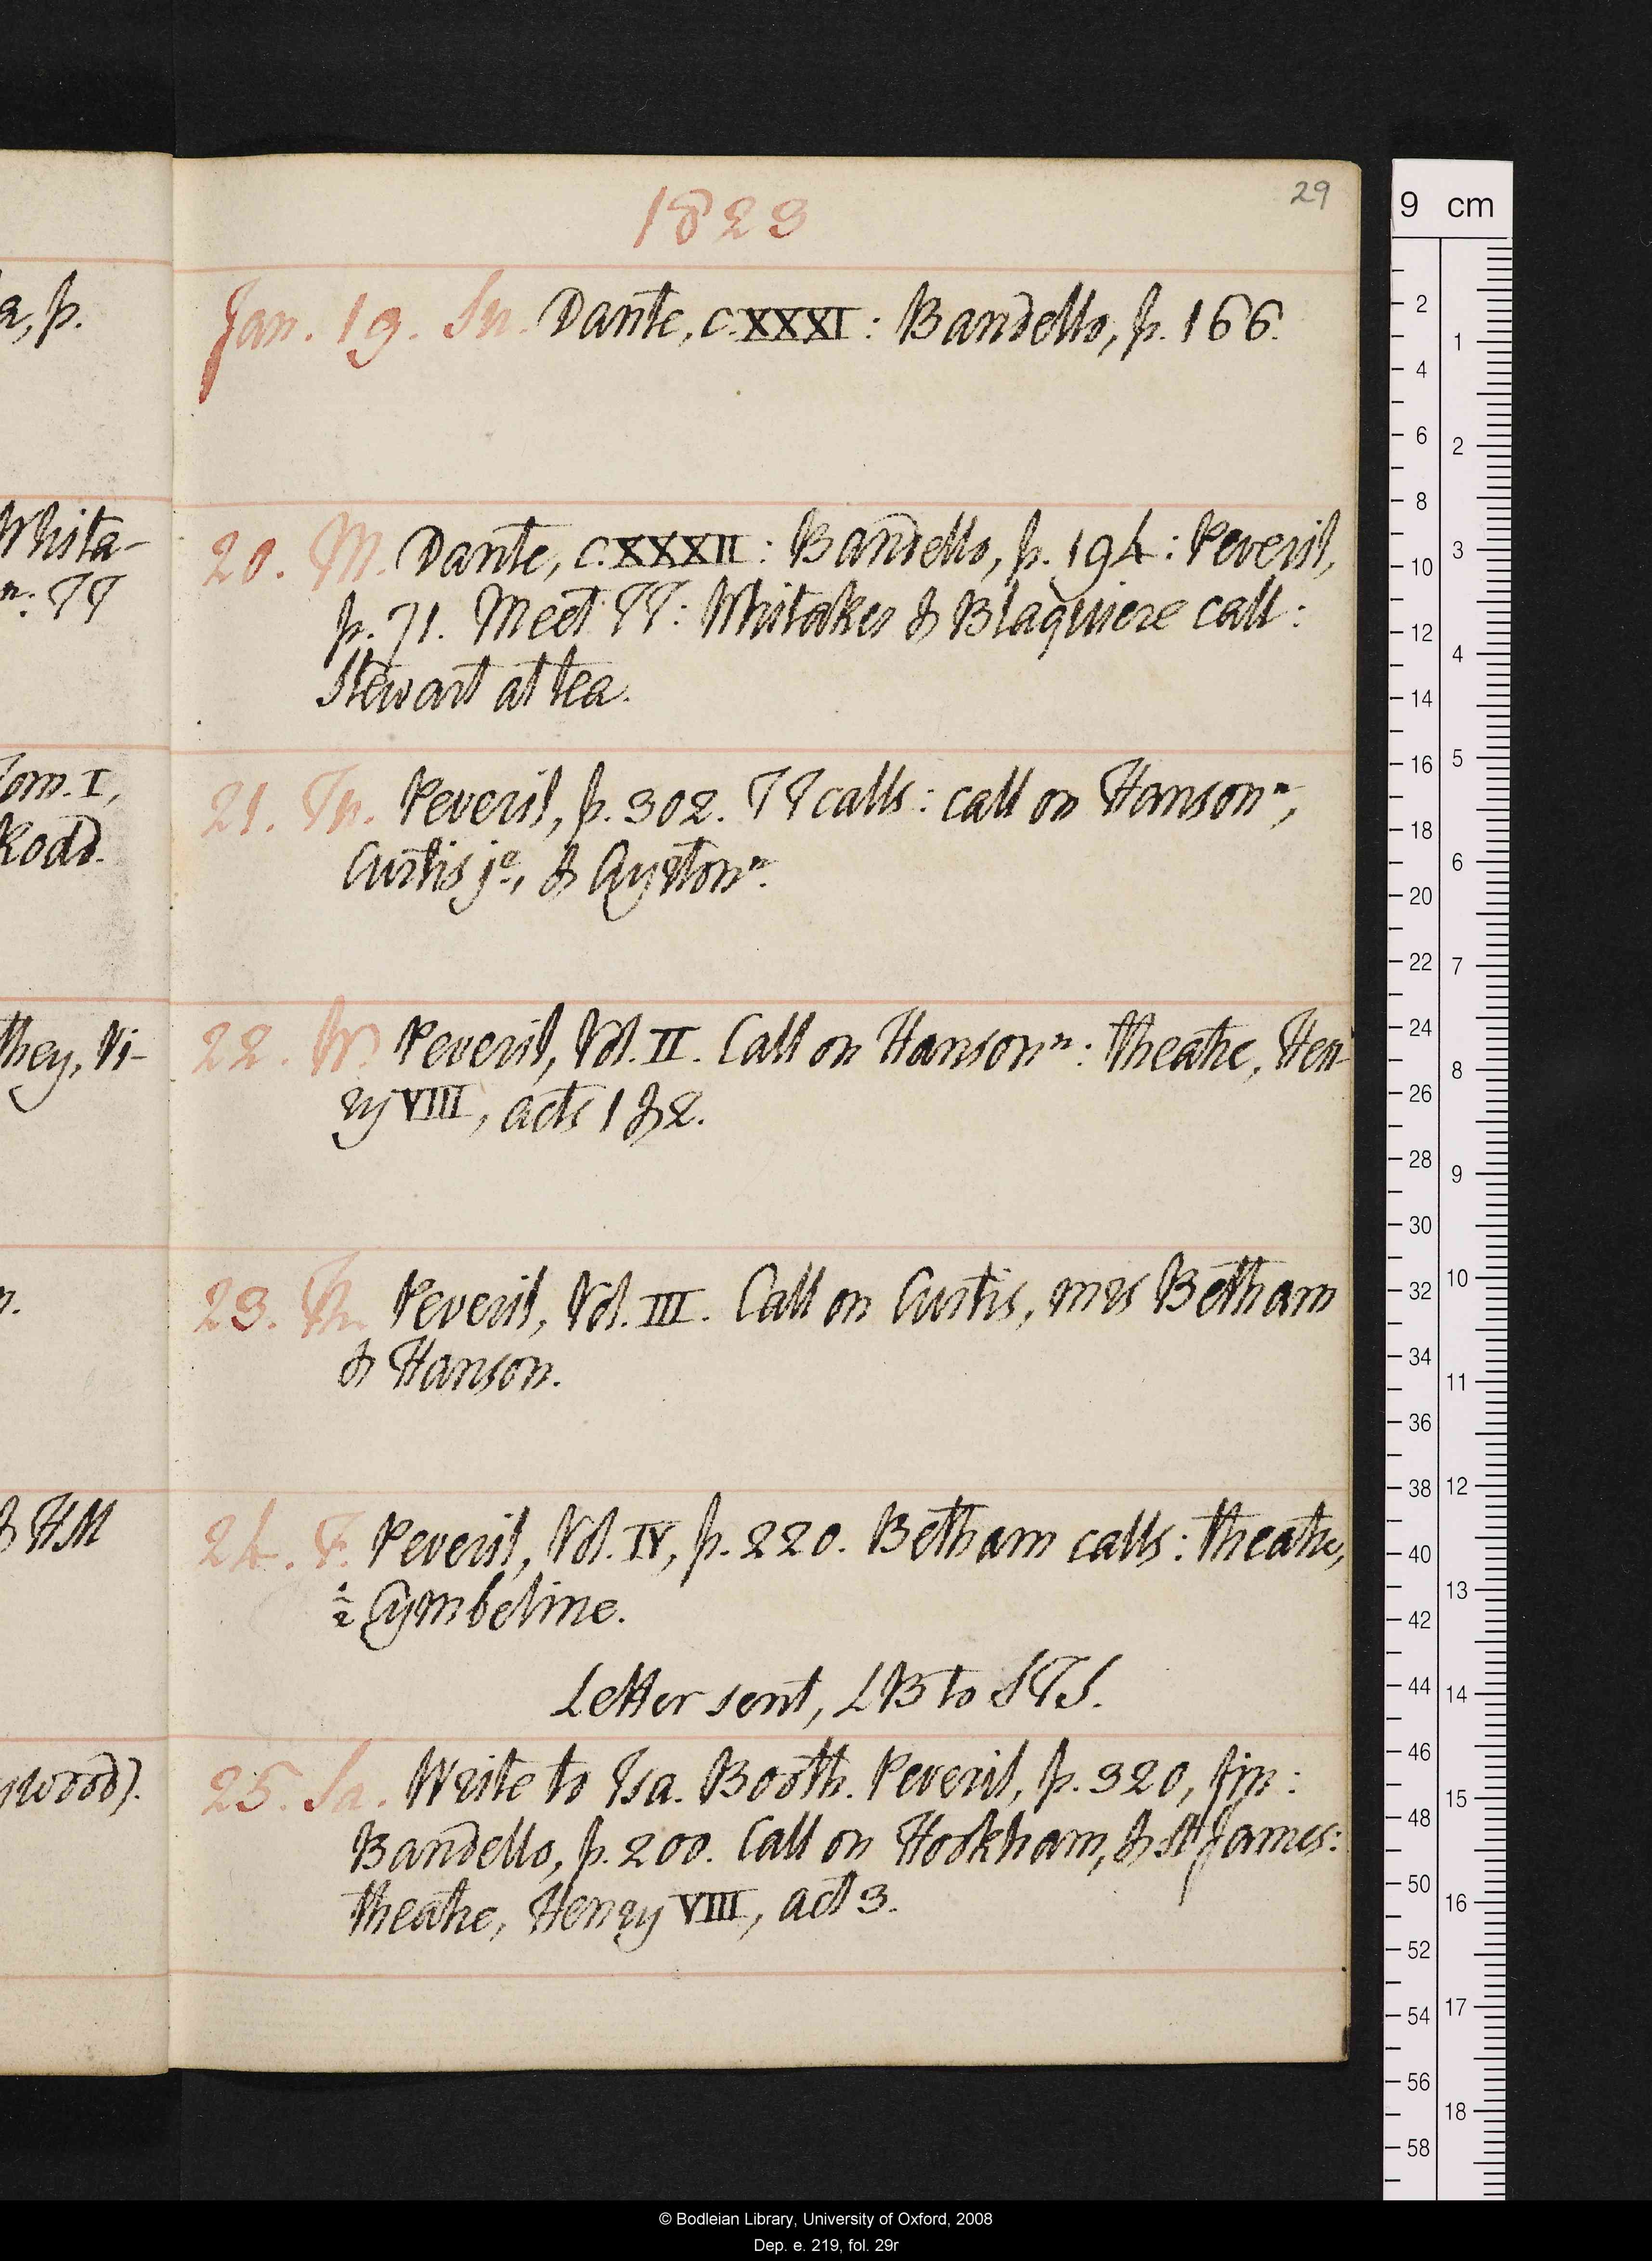 a, p.
Whita-
n: TT
Tom. I,
Rodd.
they, Vi-
n.
& HM
ywood).
29
1823
Jan. 19. Su. Dante, c. XXXI: Bandello, p. 166.
20. M. Dante, c. XXXII: Bandello, p. 194: Peveril,
p. 71. Meet TT: Whitaker & Blaquiere call:
Stewart at tea.
21. Tu. Peveril, p. 302. TT calls: call on Hanson n,
Curtis je, & Ayrton n.
22. W. Peveril, Vol. II. Call on Hanson n: theatre, Hen-
ry VIII, acts 1 & 2.
23. Th. Peveril, Vol. III. Call on Curtis, mrs Betham
& Hanson.
24. F. Peveril, Vol. IV, p. 220. Betham calls: theatre,
½ Cymbeline.
Letter sent, LB to STS.
25. Sa. Write to Isa. Booth. Peveril, p. 320, fin:
Bandello, p. 200. Call on Hookham, & St James:
theatre, Henry VIII, act 3.
9 cm
2
4
6
8
10
12
14
16
18
20
22
24
26
28
30
32
34
36
38
40
42
44
46
48
50
52
54
56
58
1
2
3
4
5
6
7
8
9
10
11
12
13
14
15
16
17
18
© Bodleian Library, University of Oxford, 2008
Dep. e. 219, fol. 29r